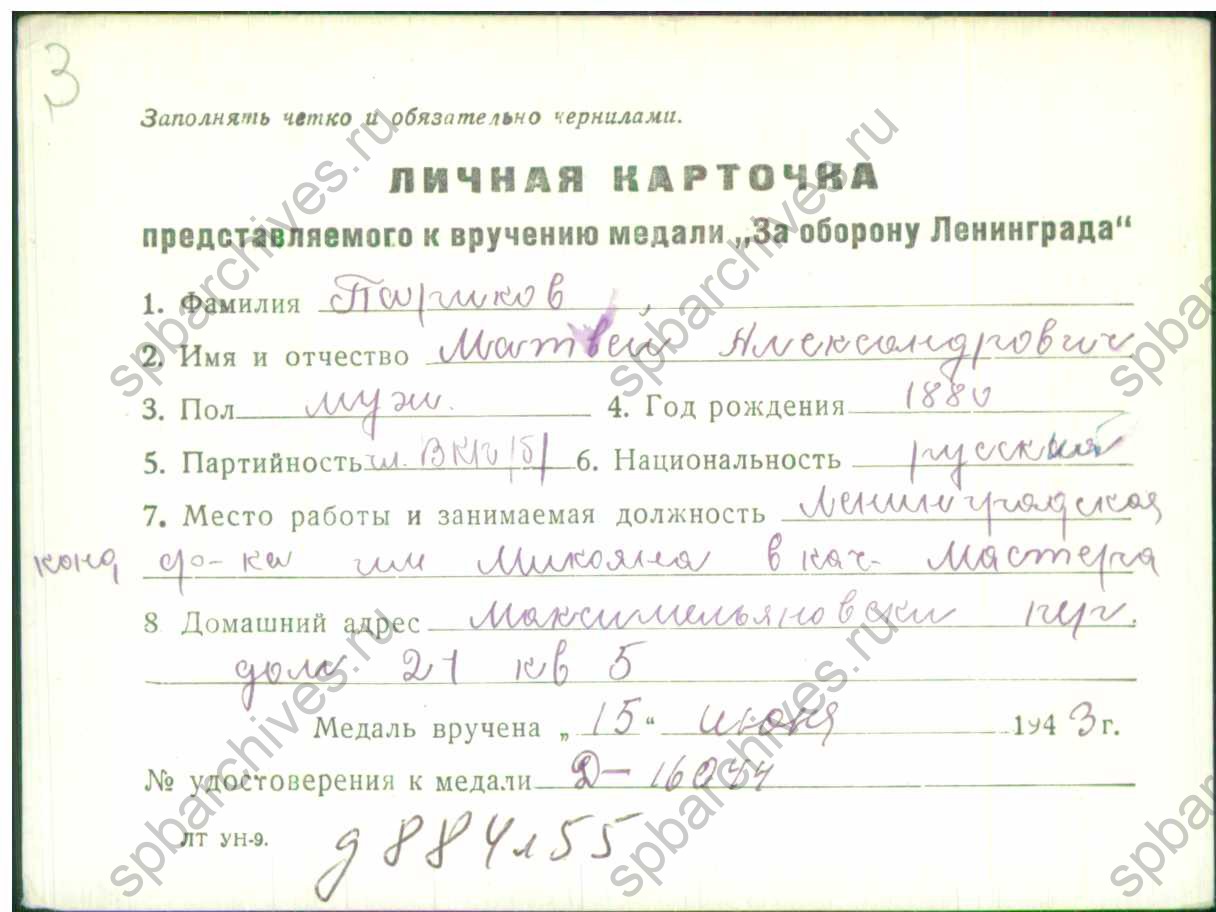 3
Заполнять четко и обязательно чернилами.
ЛИЧНАЯ КАРТОЧКА
представляемого к вручению медали „За оборону Ленинграда“
1. Фамилия Паршиков
2. Имя и отчество Матвей Александрович
3. Пол муж. 4. Год рождения 1880
5. Партийность чл. ВКП/б/ 6. Национальность русский
7. Место работы и занимаемая должность Ленинградская
конд ф-ка им Микояна в кач- мастера
8 Домашний адрес Максимельяновски пер.
дом 21 кв 5
Медаль вручена „15“ июня 1943 г.
№ удостоверения к медали Д-16044
ЛТ УН-9.
д 884 л 55
spbarchives.ru
spbarchives.ru
spbarchives.ru
spbarchives.ru